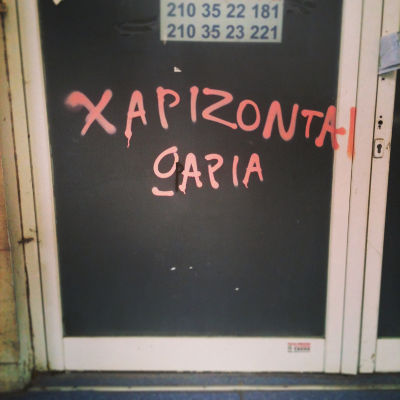 210 35 22 181
210 35 23 221
ΧΑΡΙΖΟΝΤΑΙ
gΑΡΙΑ